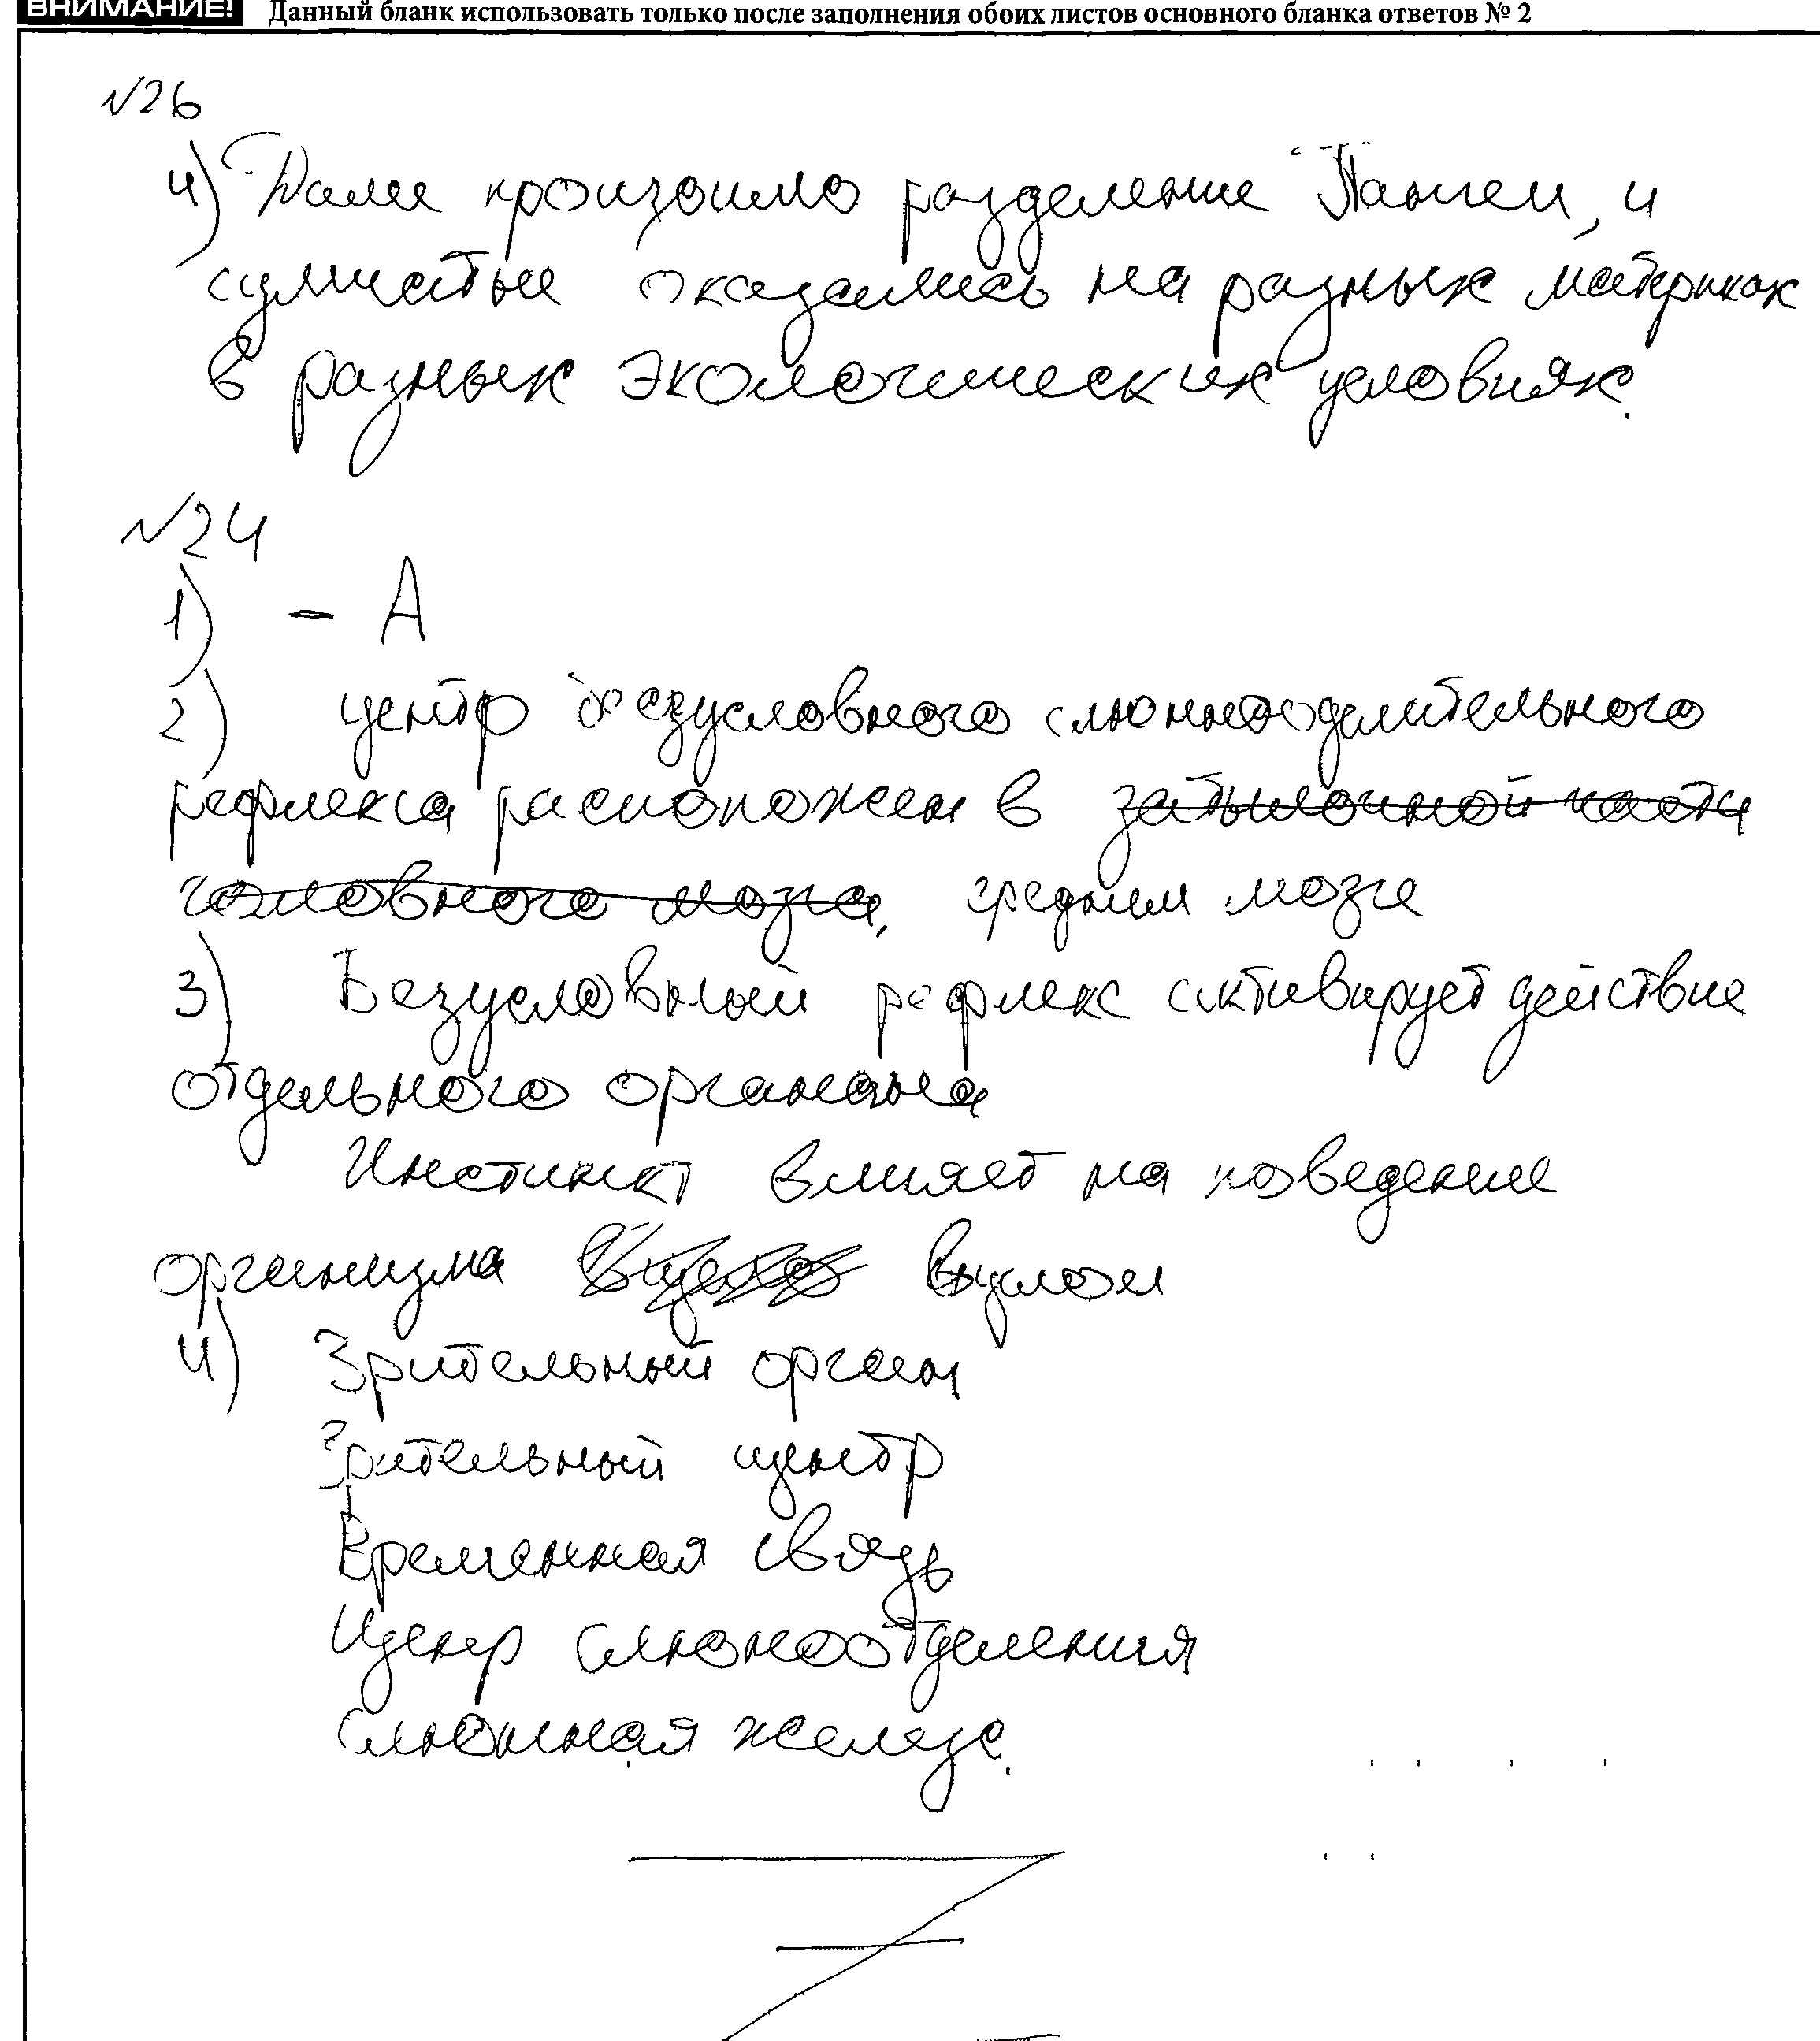 ВНИМАНИЕ! Данный бланк использовать только после заполнения обоих листов основного бланка ответов № 2
№26
4) Далее произошло разделение Пангеи, и
сумчатые оказались на разных материках
в разных экологических условиях.
№24
1) – А
2) центр безусловного слюнноотделительного
рефлекса расположен в затылочной части
головного мозга, среднем мозге
3) Безусловный рефлекс активирует действие
отдельного органа
Инстинкт влияет на поведение
организма в целом
4) Зрительный орган
Зрительный центр
Временная связь
Ценр слюноотделения
Слюнная железа.